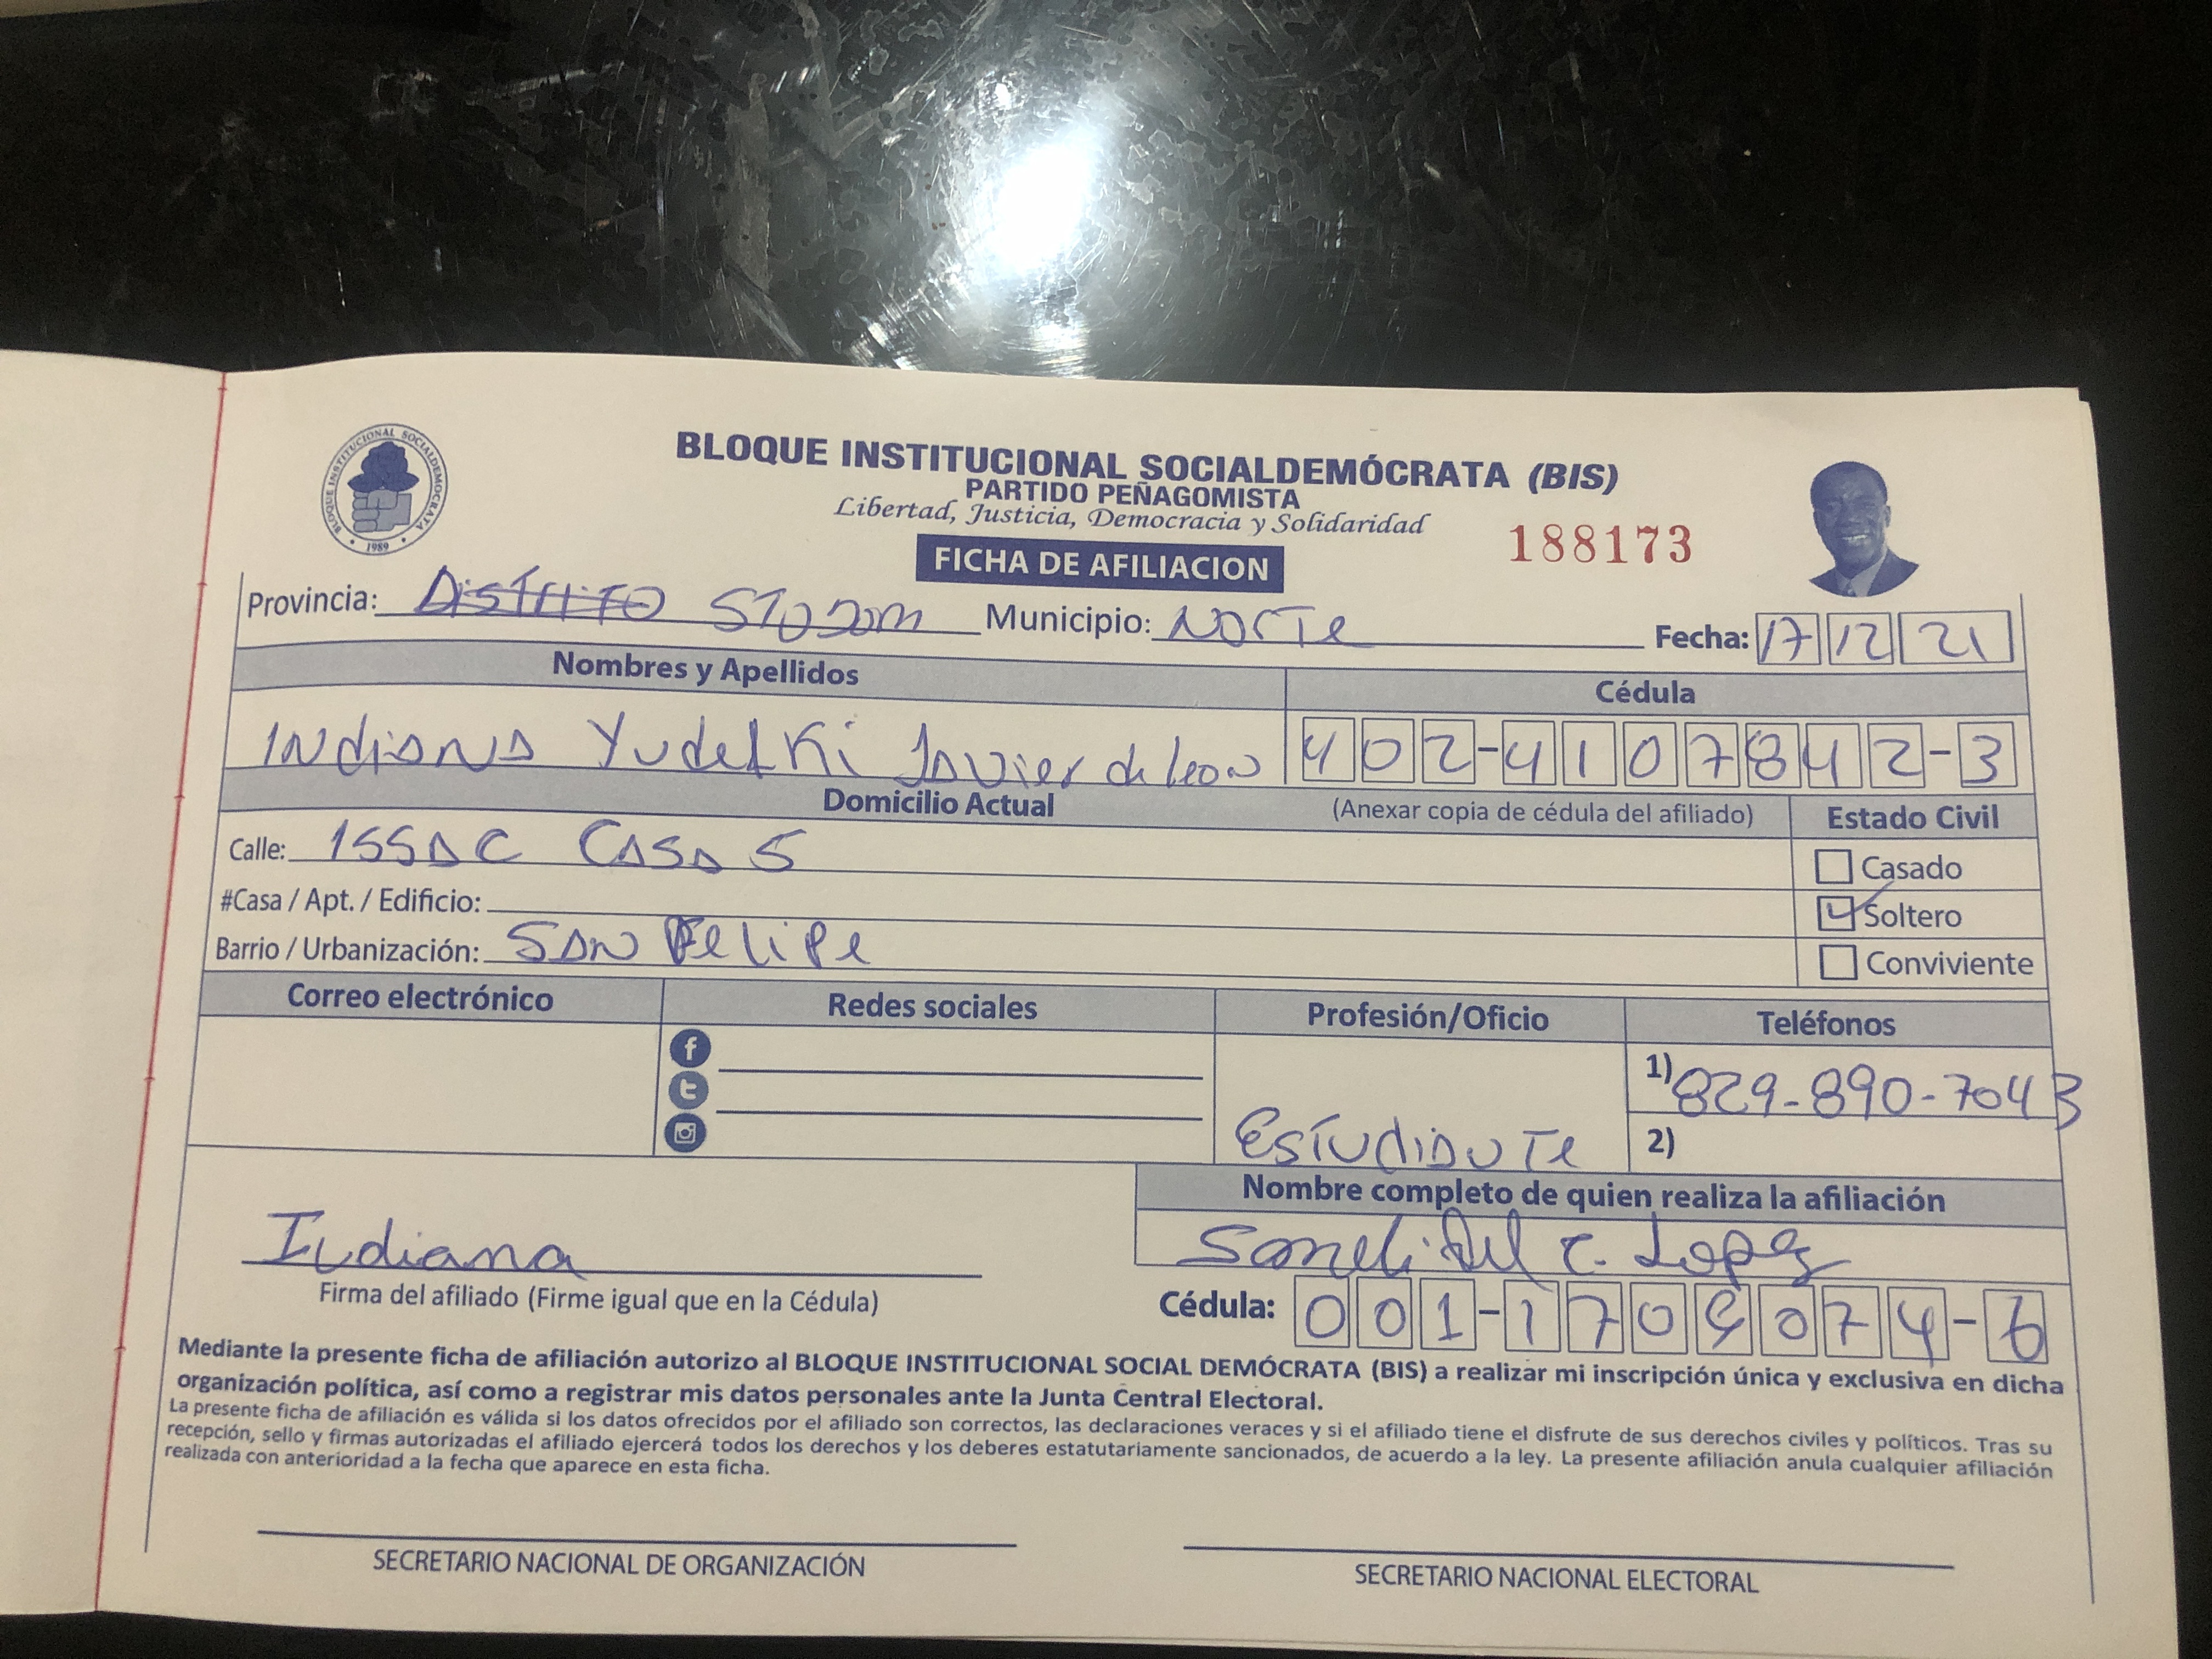 BLOQUE INSTITUCIONAL SOCIALDEMOCRATA
1989
BLOQUE INSTITUCIONAL SOCIALDEMÓCRATA (BIS)
PARTIDO PEÑAGOMISTA
Libertad, Justicia, Democracia y Solidaridad
188173
FICHA DE AFILIACION
Provincia: Distrito STO Dom Municipio: Norte Fecha: 17 12 21
Nombres y Apellidos Cédula
Indiana Yudelki Javier de Leon 402-4107842-3
Domicilio Actual (Anexar copia de cédula del afiliado) Estado Civil
Calle: Issac Casa 5 Casado
#Casa / Apt. / Edificio: Soltero
Barrio / Urbanización: San Felipe Conviviente
Correo electrónico Redes sociales Profesión/Oficio Teléfonos
1) 829-890-7043
Estudiante 2)
Nombre completo de quien realiza la afiliación
Indiana del C. Lopez
Firma del afiliado (Firme igual que en la Cédula) Cédula: 001-1709074-6
Mediante la presente ficha de afiliación autorizo al BLOQUE INSTITUCIONAL SOCIAL DEMÓCRATA (BIS) a realizar mi inscripción única y exclusiva en dicha
organización política, así como a registrar mis datos personales ante la Junta Central Electoral.
La presente ficha de afiliación es válida si los datos ofrecidos por el afiliado son correctos, las declaraciones veraces y si el afiliado tiene el disfrute de sus derechos civiles y políticos. Tras su
recepción, sello y firmas autorizadas el afiliado ejercerá todos los derechos y los deberes estatutariamente sancionados, de acuerdo a la ley. La presente afiliación anula cualquier afiliación
realizada con anterioridad a la fecha que aparece en esta ficha.
SECRETARIO NACIONAL DE ORGANIZACIÓN SECRETARIO NACIONAL ELECTORAL